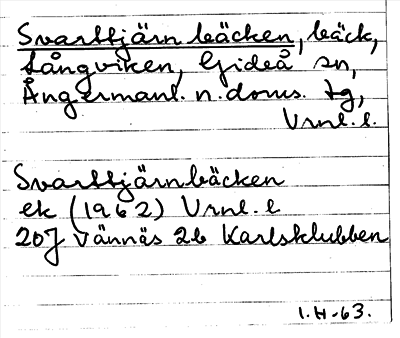 Svarttjärnbäcken, bäck,
Långviken, Gideå sn,
Ångermanl. n. doms. tg,
Vrnl. l.
Svarttjärnbäcken
ek (1962) Vrnl. l
20J Vännäs 2b Karlsklubben
1.H-63.